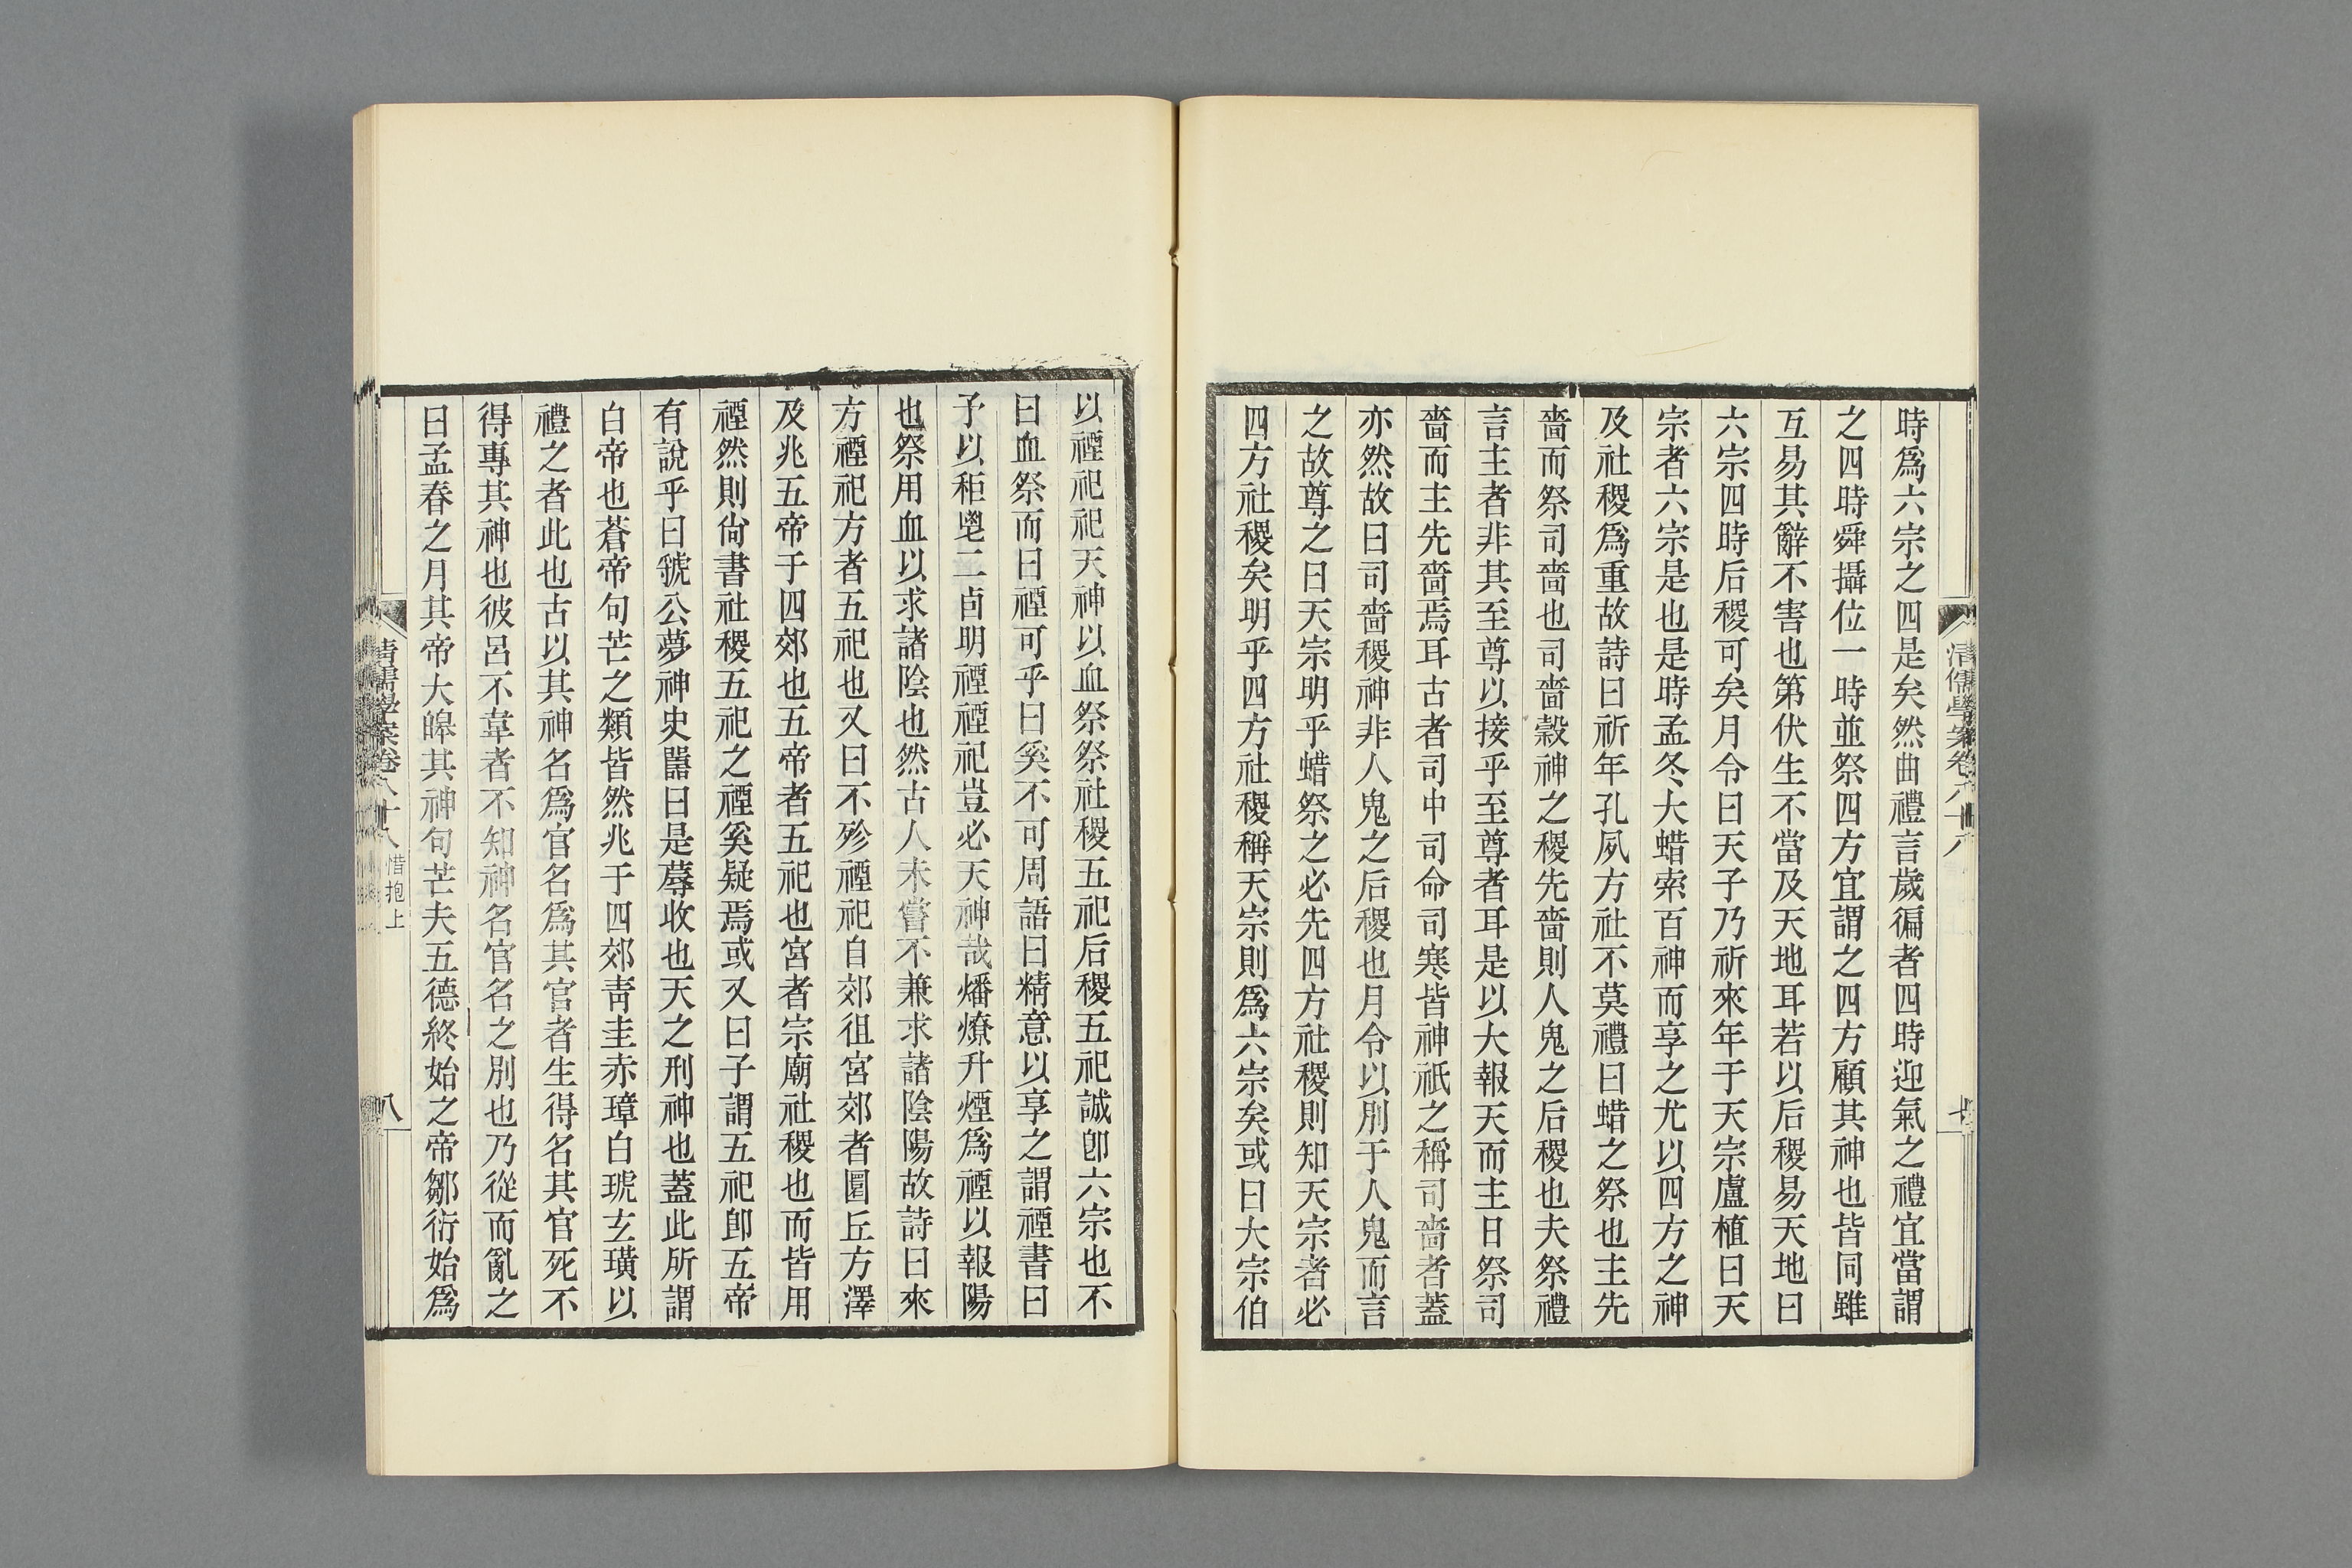 時爲六宗之四是矣然曲禮言歲徧者四時迎氣之禮宜當謂
之四時舜攝位一時並祭四方宜謂之四方顧其神也皆同雖
互易其辭不害也第伏生不當及天地耳若以后稷易天地曰
六宗四時后稷可矣月令曰天子乃祈來年于天宗盧植曰天
宗者六宗是也是時孟冬大蜡索百神而享之尤以四方之神
及社稷爲重故詩曰祈年孔夙方社不莫禮曰蜡之祭也主先
嗇而祭司嗇也司嗇穀神之稷先嗇則人鬼之后稷也夫祭禮
言主者非其至尊以接乎至尊者耳是以大報天而主日祭司
嗇而主先嗇焉耳古者司中司命司寒皆神祇之稱司嗇者蓋
亦然故曰司嗇稷神非人鬼之后稷也月令以別于人鬼而言
之故尊之曰天宗明乎蜡祭之必先四方社稷則知天宗者必
四方社稷矣明乎四方社稷稱天宗則爲六宗矣或曰大宗伯
清儒學案卷八十八
七
以禋祀祀天神以血祭祭社稷五祀后稷五祀誠卽六宗也不
曰血祭而曰禋可乎曰奚不可周語曰精意以享之謂禋書曰
予以秬鬯二卣明禋禋祀豈必天神哉燔燎升煙爲禋以報陽
也祭用血以求諸陰也然古人未嘗不兼求諸陰陽故詩曰來
方禋祀方者五祀也又曰不殄禋祀自郊徂宮郊者圜丘方澤
及兆五帝于四郊也五帝者五祀也宮者宗廟社稷也而皆用
禋然則尙書社稷五祀之禋奚疑焉或又曰子謂五祀卽五帝
有說乎曰虢公夢神史嚚曰是蓐收也天之刑神也蓋此所謂
白帝也蒼帝句芒之類皆然兆于四郊靑圭赤璋白琥玄璜以
禮之者此也古以其神名爲官名爲其官者生得名其官死不
得專其神也彼呂不韋者不知神名官名之別也乃從而亂之
曰孟春之月其帝大皞其神句芒夫五德終始之帝鄒衍始爲
清儒學案卷八十八 惜抱上
八